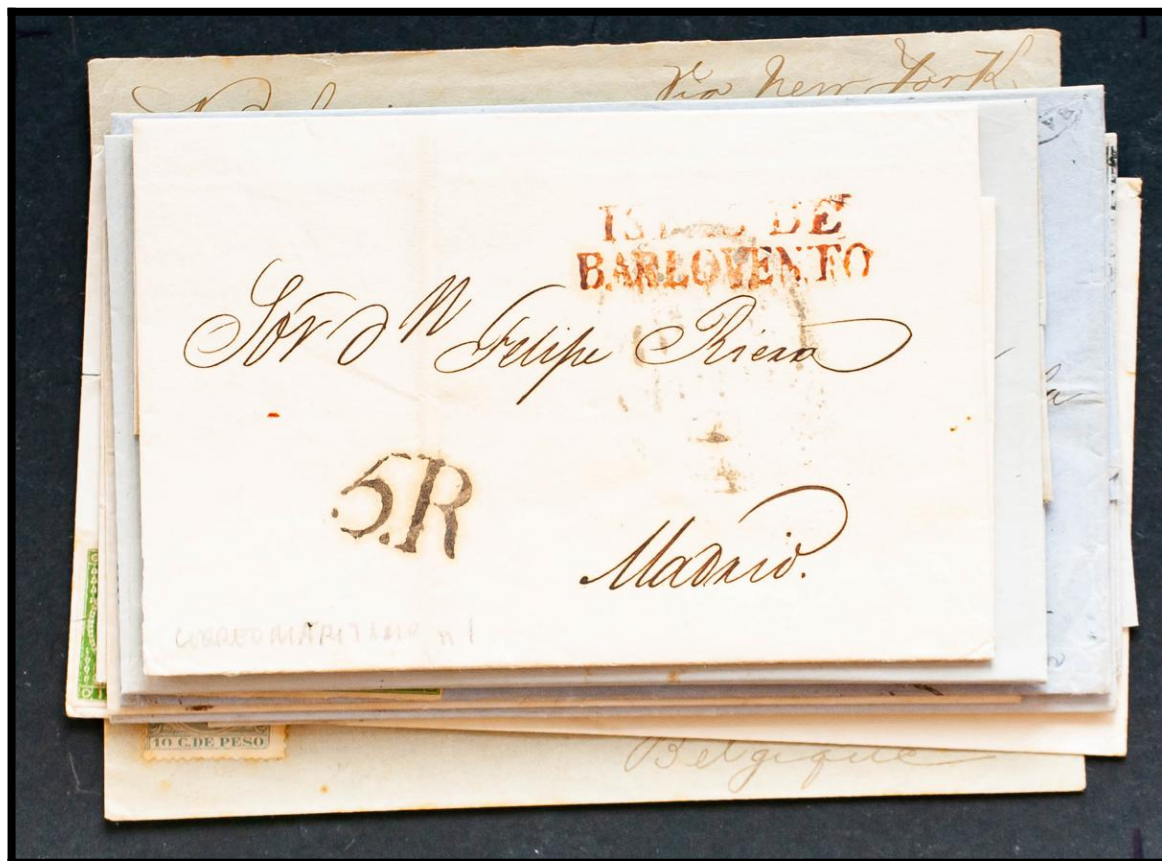 Via New York
ISLAS DE
BARLOVENTO
Sor Dn Felipe Riera
5.R
Madrid.
CORREO MARITIMO nº 1
10 C. DE PESO
Belgique